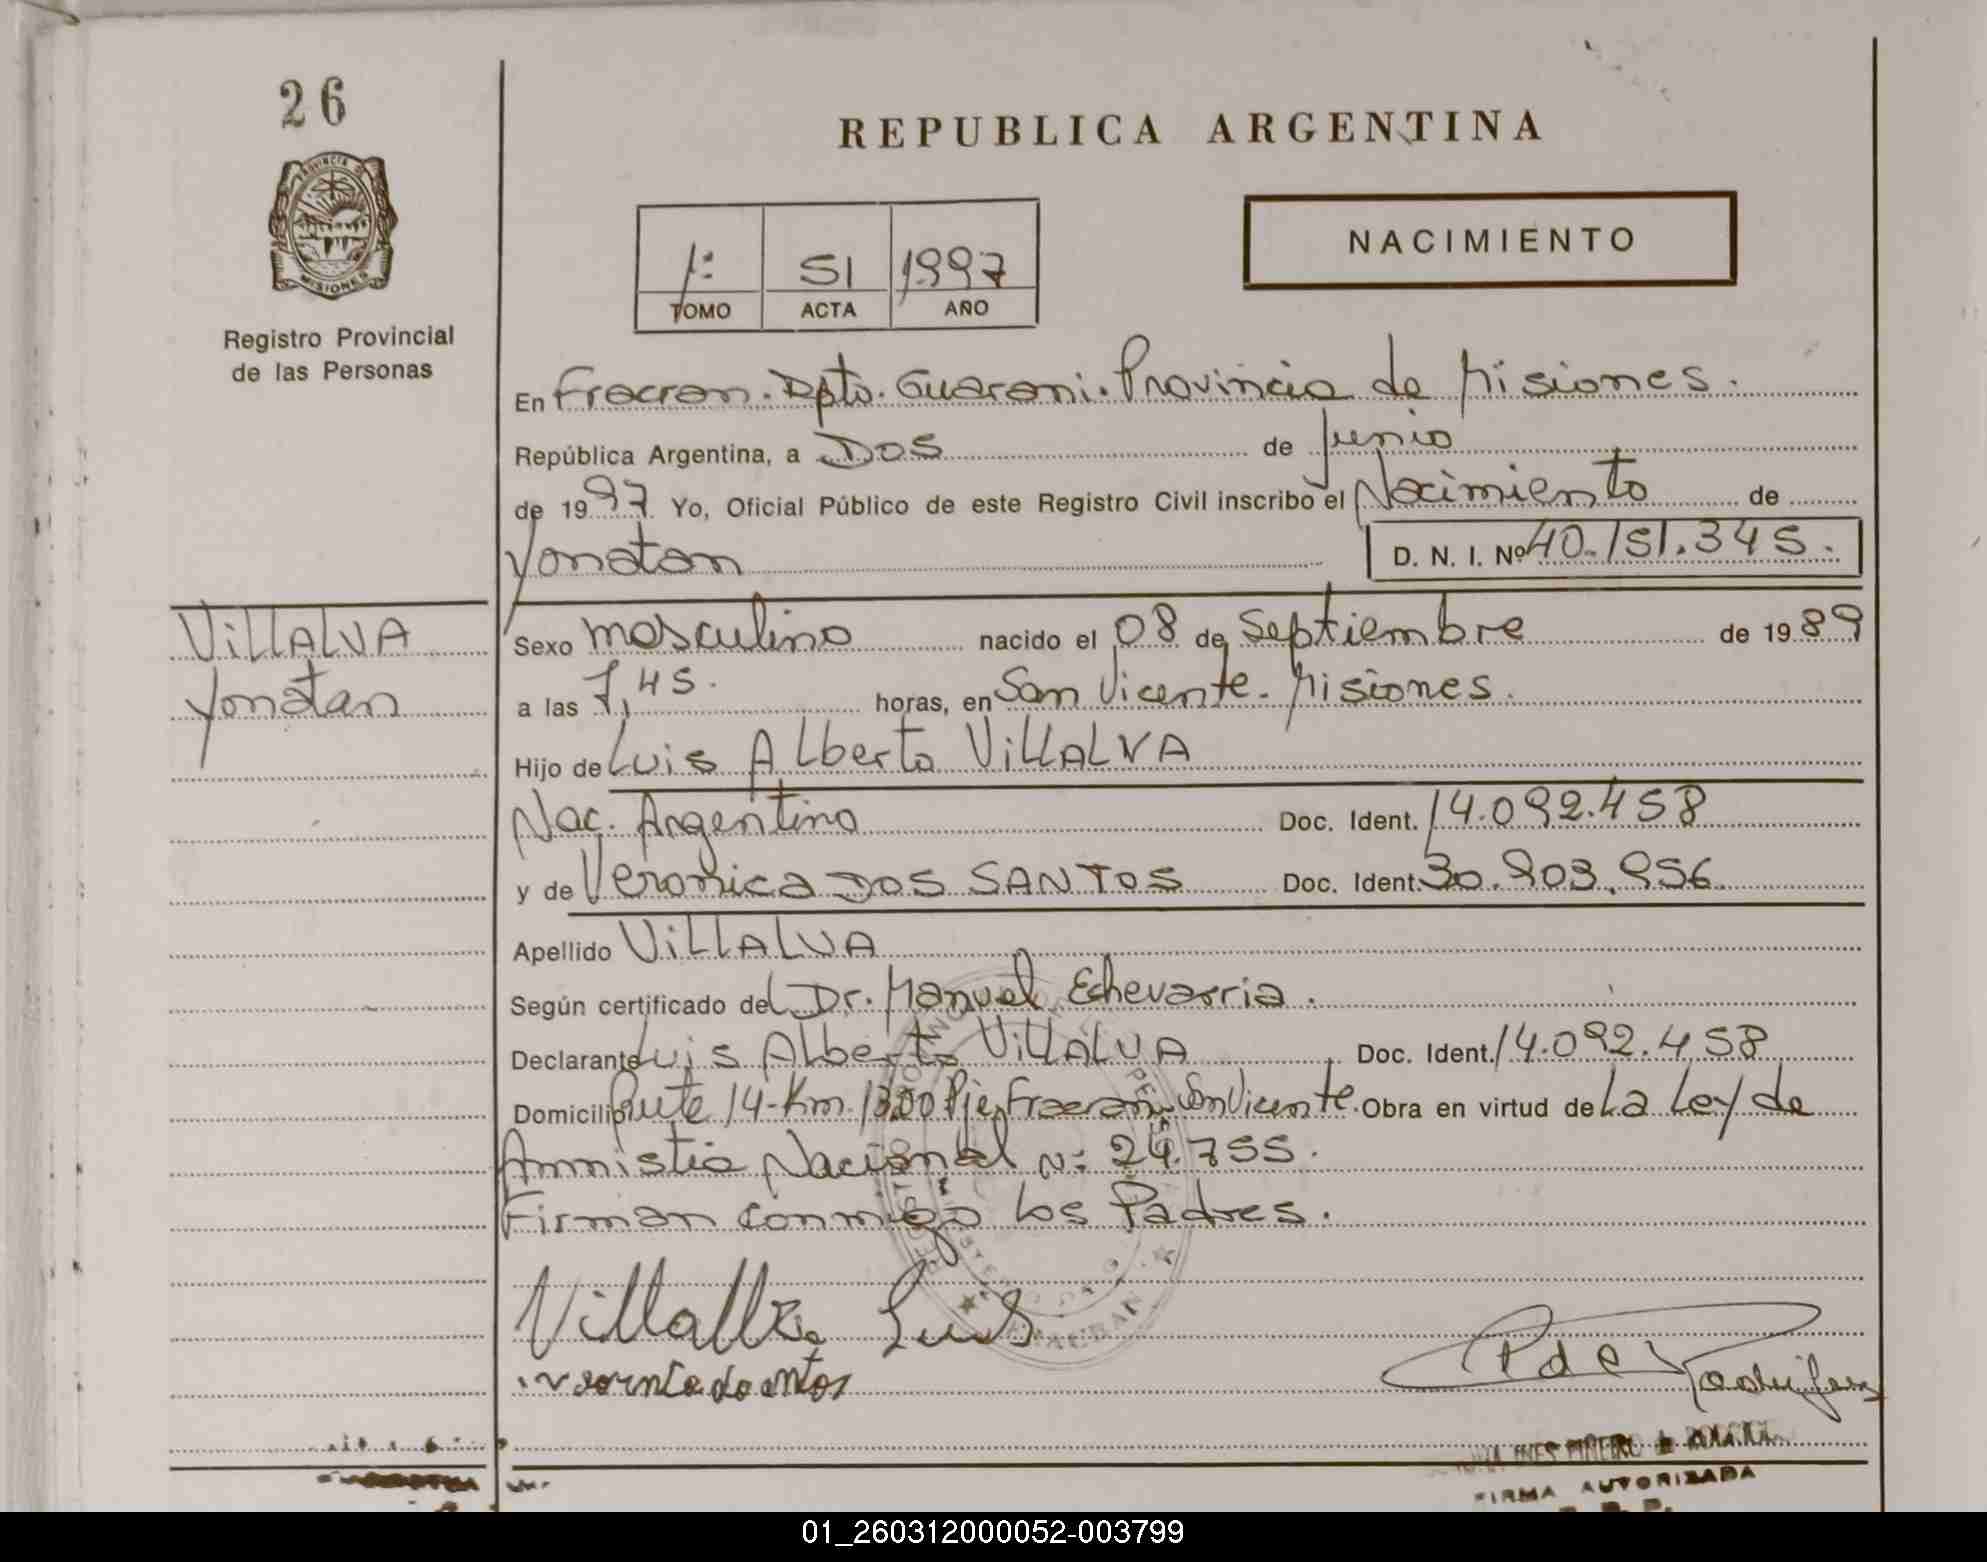 26
REPUBLICA ARGENTINA
PROVINCIA DE
MISIONES
Registro Provincial
de las Personas
1º 51 1997
TOMO ACTA AÑO
NACIMIENTO
En Fracran. Dpto. Guarani. Provincia de Misiones.
República Argentina, a Dos de Junio
de 1997 Yo, Oficial Público de este Registro Civil inscribo el Nacimiento de
Yonatan D. N. I. Nº 40.151.345.
VILLALVA
Yonatan
Sexo masculino nacido el 08 de Septiembre de 1989
a las 7,45. horas, en San Vicente. Misiones.
Hijo de Luis Alberto VILLALVA
Nac. Argentino Doc. Ident. 14.092.458
y de Veronica DOS SANTOS Doc. Ident. 30.903.956
Apellido VILLALVA
Según certificado del Dr. Manuel Echevarria.
Declarante Luis Alberto VILLALVA Doc. Ident. 14.092.458
Domicilio Rute 14-Km. 1300 Pje Fracran. San Vicente. Obra en virtud de La Ley de
Amnistia Nacional Nº 24.755.
Firman conmigo los Padres.
Villalba Luis
FRACRAN
P de Rodriguez
INES PIÑEIRO de
FIRMA AUTORIZADA
01_260312000052-003799